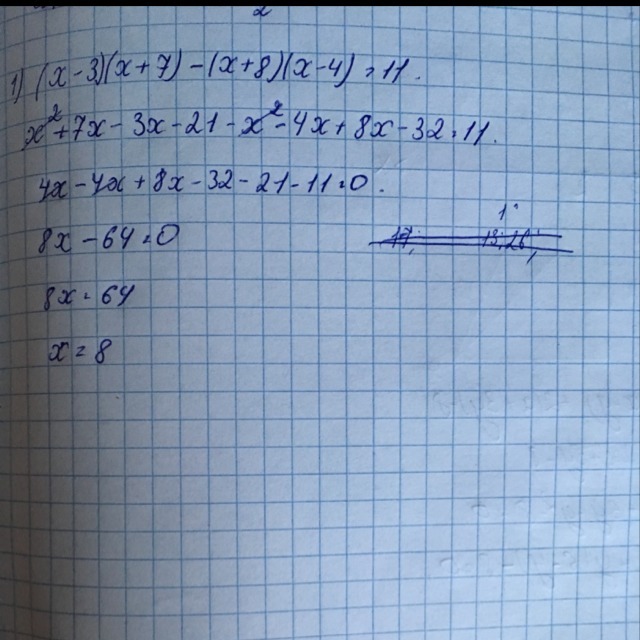 2
1) (x-3)(x+7)-(x+8)(x-4)=11.
x²+7x-3x-21-x²-4x+8x-32=11.
4x-4x+8x-32-21-11=0.
8x-64=0
8x=64
x=8